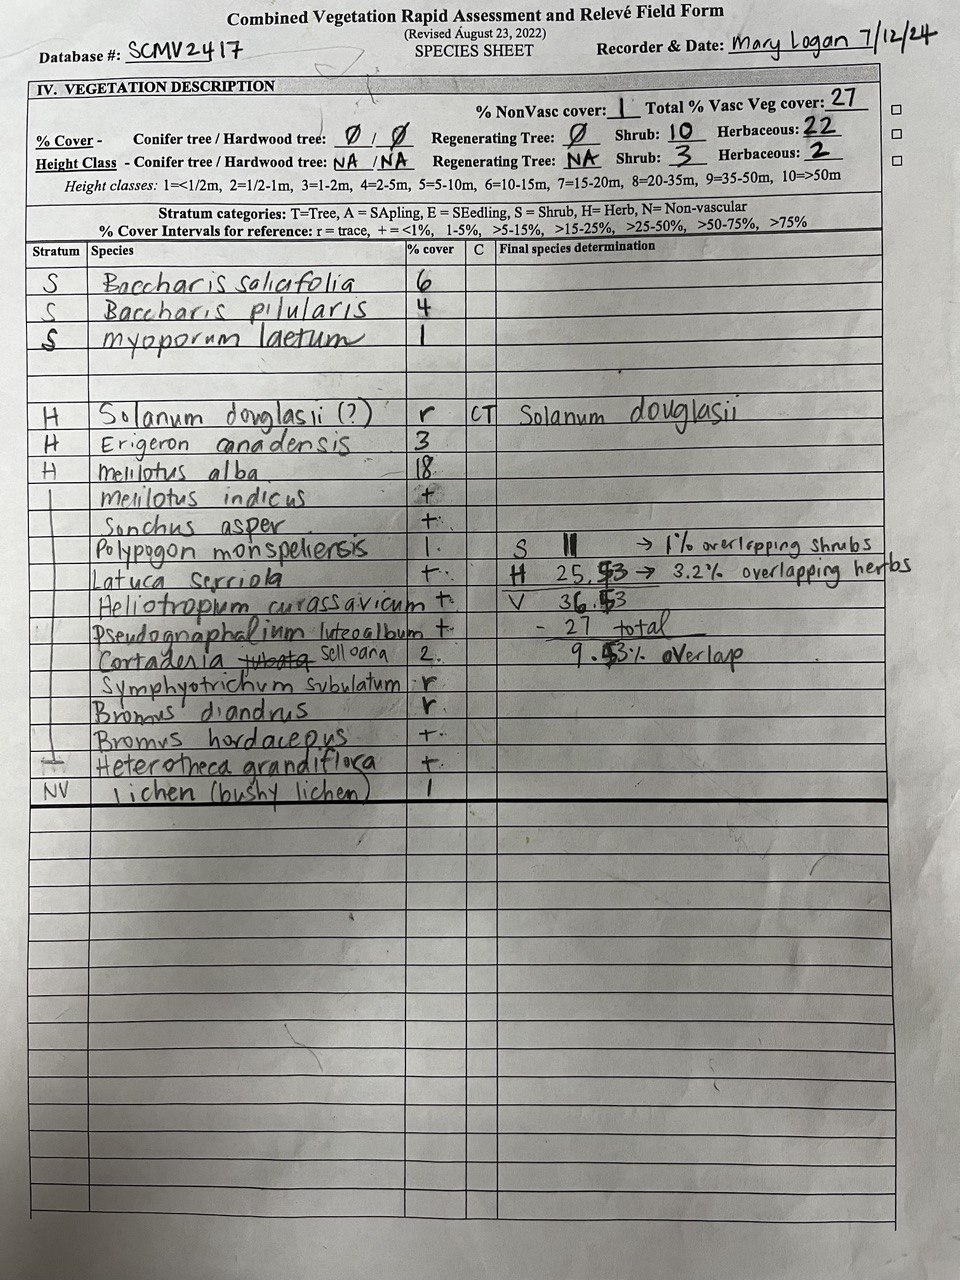 Combined Vegetation Rapid Assessment and Relevé Field Form
(Revised August 23, 2022)
Database #: SCMV2417 SPECIES SHEET Recorder & Date: Mary Logan 7/12/24
IV. VEGETATION DESCRIPTION
% NonVasc cover: 1 Total % Vasc Veg cover: 27
% Cover - Conifer tree / Hardwood tree: Ø / Ø Regenerating Tree: Ø Shrub: 10 Herbaceous: 22
Height Class - Conifer tree / Hardwood tree: NA / NA Regenerating Tree: NA Shrub: 3 Herbaceous: 2
Height classes: 1=<1/2m, 2=1/2-1m, 3=1-2m, 4=2-5m, 5=5-10m, 6=10-15m, 7=15-20m, 8=20-35m, 9=35-50m, 10=>50m
Stratum categories: T=Tree, A = SApling, E = SEedling, S = Shrub, H= Herb, N= Non-vascular
% Cover Intervals for reference: r = trace, + = <1%, 1-5%, >5-15%, >15-25%, >25-50%, >50-75%, >75%
Stratum Species % cover C Final species determination
S Baccharis salicifolia 6
S Baccharis pilularis 4
S myoporum laetum 1
H Solanum douglasii (?) r CT Solanum douglasii
H Erigeron canadensis 3
H melilotus alba 18
melilotus indicus +
Sonchus asper +
Polypogon monspeliensis 1 S 11 → 1% overlapping shrubs
Latuca serriola + H 25. 3 → 3.2% overlapping herbs
Heliotropium curassavicum + V 36. 3
Pseudognaphalinm luteoalbum + - 27 total
Cortaderia jubata selloana 2 9. 3% overlap
Symphyotrichum subulatum r
Bromus diandrus r
Bromus hordaceous +
H Heterotheca grandiflora +
NV lichen (bushy lichen) 1